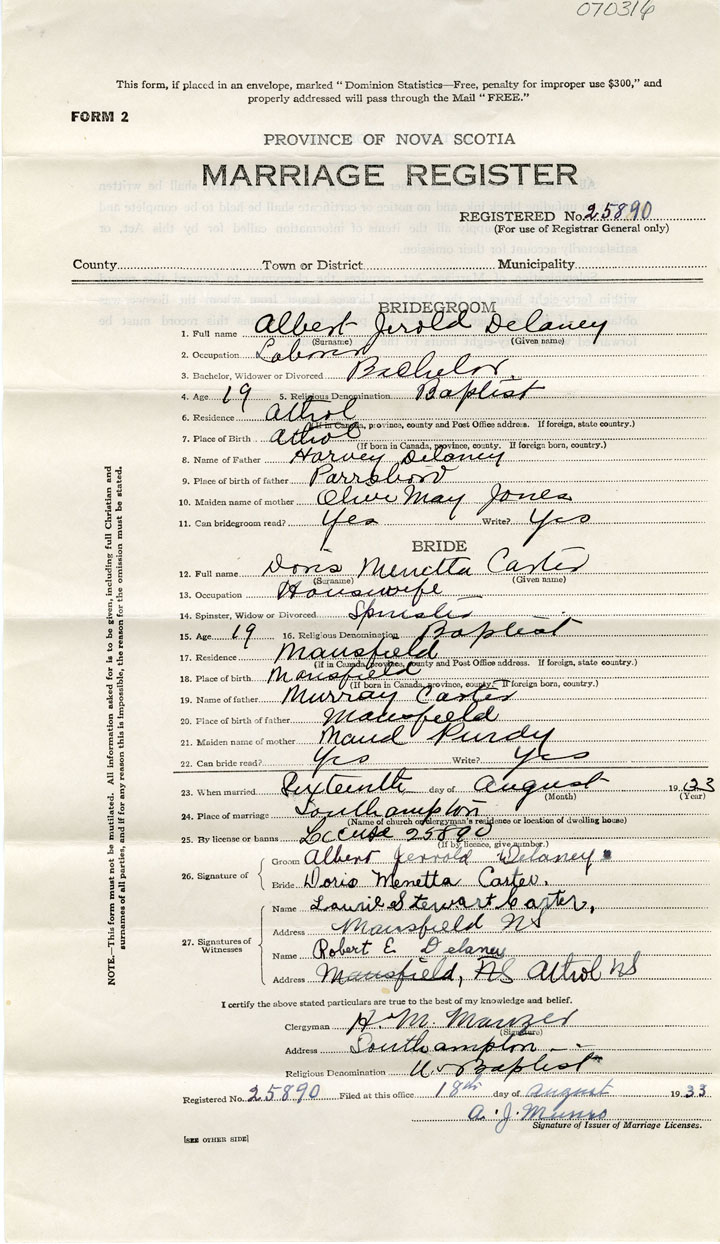 070316
This form, if placed in an envelope, marked "Dominion Statistics—Free, penalty for improper use $300," and
properly addressed will pass through the Mail "FREE."
FORM 2
PROVINCE OF NOVA SCOTIA
MARRIAGE REGISTER
REGISTERED No. 25890
(For use of Registrar General only)
County Town or District Municipality
BRIDEGROOM
1. Full name Albert Jerold Delaney
(Surname) (Given name)
2. Occupation Laborer
3. Bachelor, Widower or Divorced Bachelor.
4. Age 19 5. Religious Denomination Baptist
6. Residence Athol
(If in Canada, province, county and Post Office address. If foreign, state country.)
7. Place of Birth Athol
(If born in Canada, province, county. If foreign born, country.)
8. Name of Father Harvey Delaney
9. Place of birth of father Parrsboro
10. Maiden name of mother Olive May Jones
11. Can bridegroom read? Yes Write? Yes
BRIDE
12. Full name Doris Menetta Carter
(Surname) (Given name)
13. Occupation Housewife
14. Spinster, Widow or Divorced Spinster
15. Age 19 16. Religious Denomination Baptist
17. Residence Mansfield
(If in Canada, province, county and Post Office address. If foreign, state country.)
18. Place of birth Mansfield
(If born in Canada, province, county. If foreign born, country.)
19. Name of father Murray Carter
20. Place of birth of father Mansfield
21. Maiden name of mother Maud Purdy
22. Can bride read? Yes Write? Yes
23. When married Sixteenth day of August 1933
(Month) (Year)
24. Place of marriage Southampton
(Name of church or clergyman's residence or location of dwelling house)
25. By license or banns License 25890
(If by licence, give number.)
26. Signature of
Groom Albert Jerrold Delaney
Bride Doris Menetta Carter.
27. Signatures of Witnesses
Name Laurie Stewart Carter,
Address Mansfield NS
Name Robert E. Delaney
Address Mansfield, NS Athol NS
I certify the above stated particulars are true to the best of my knowledge and belief.
Clergyman H. M. Manzer
(Signature)
Address Southampton
Religious Denomination U. Baptist
Registered No. 25890 Filed at this office 18th day of August 1933
A. J. Munro
Signature of Issuer of Marriage Licenses.
[SEE OTHER SIDE]
NOTE.—This form must not be mutilated. All information asked for is to be given, including full Christian and
surnames of all parties, and if for any reason this is impossible, the reason for the omission must be stated.